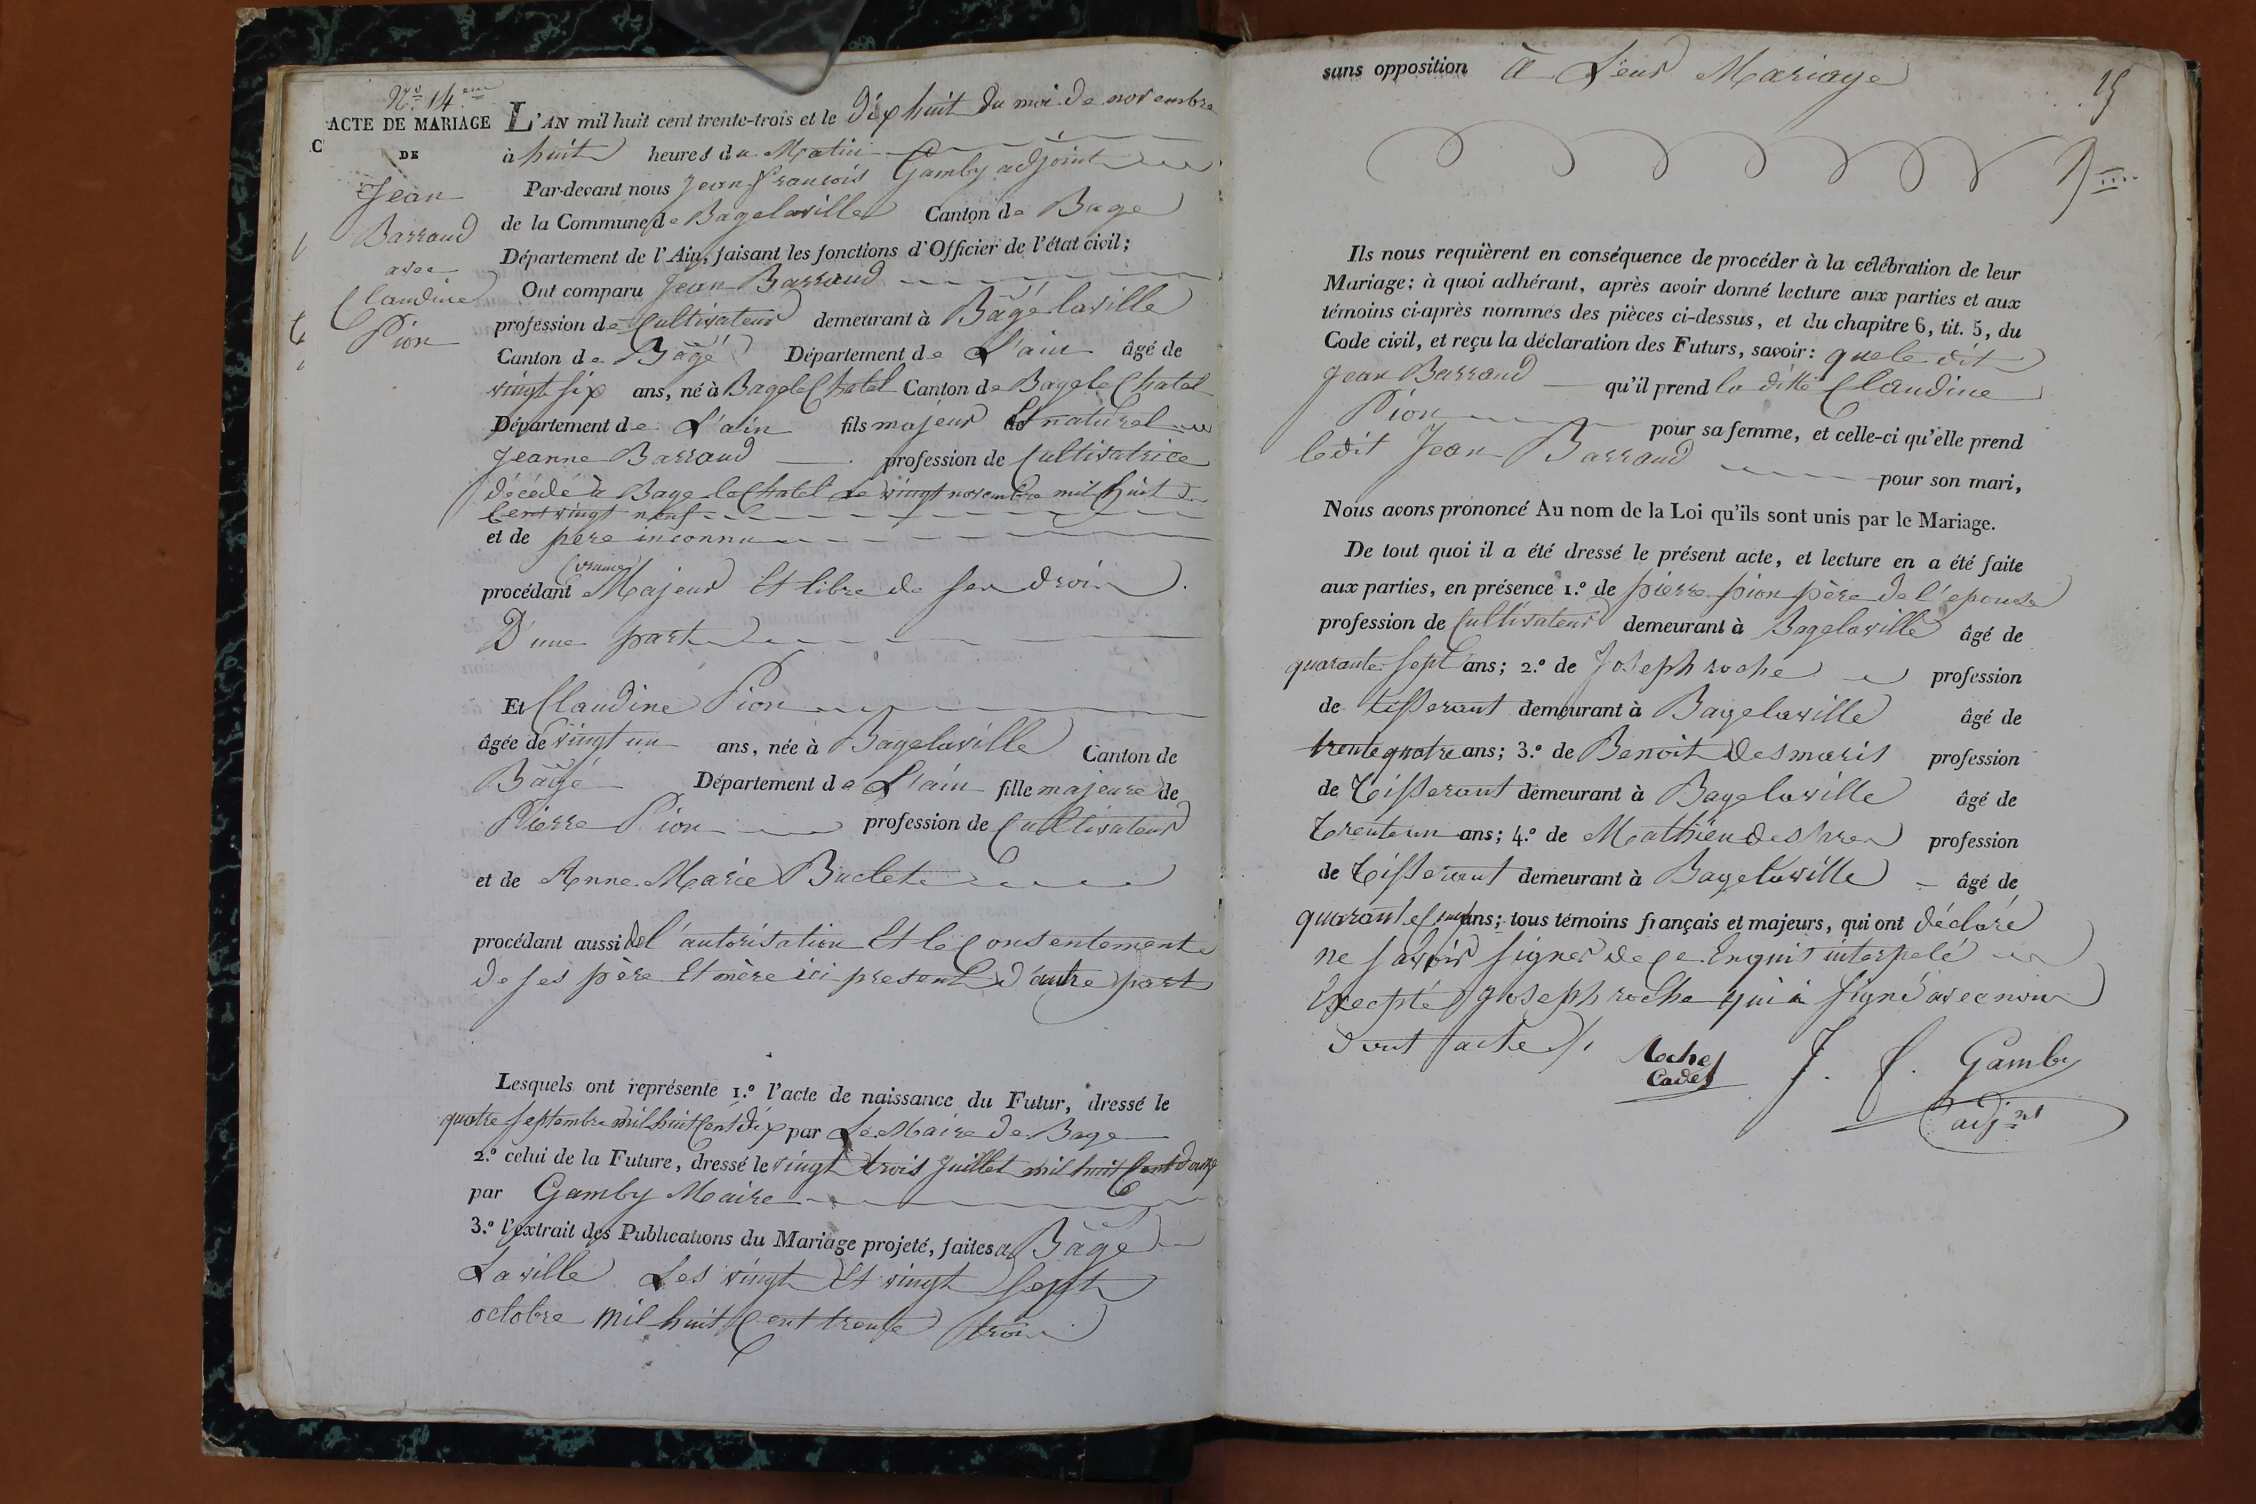 N.o 14.eme
ACTE DE MARIAGE
DE
Jean
Barraud
avec
Claudine
Pion
L'AN mil huit cent trente-trois et le dix huit du moi de novembre
à huit heures du Matin
Par-devant nous jean francois Gamby adjoint
de la Commune de Bagelaville Canton de Bage
Département de l'Ain, faisant les fonctions d'Officier de l'état civil;
Ont comparu Jean Barraud
profession de Cultivateur demeurant à Bâgé laville
Canton de Bâgé Département de L'ain âgé de
vingt six ans, né à Bage le Chatel Canton de Bage le Chatel
Département de L'ain fils majeur et naturel
Jeanne Barraud profession de Cultivatrice
décédé à Bage le Chatel le vingt novembre mil huit
Cent vingt neuf
et de père inconnu
procédant comme Majeur Et libre de ses droin
D'une part
Et Claudine Pion
âgée de vingt un ans, née à Bagelaville Canton de
Bâgé Département de L'ain fille majeure de
Pierre Pion profession de Cultivateur
et de Anne Marie Buclet
procédant aussi de l'autorisation Et le Consentement
de ses père Et mère ici present d'autre part
Lesquels ont représente 1.o l'acte de naissance du Futur, dressé le
quatre septembre mil huit Cent dix par Le Maire de Bage
2.o celui de la Future, dressé le vingt trois juillet mil huit Cent douze
par Gamby Maire
3.o l'extrait des Publications du Mariage projeté, faites a Bâgé
Laville Les vingt Et vingt sept
octobre mil huit Cent trente trois
15
sans opposition à Leur Mariage
Ils nous requièrent en conséquence de procéder à la célébration de leur
Mariage; à quoi adhérant, après avoir donné lecture aux parties et aux
témoins ci-après nommés des pièces ci-dessus, et du chapitre 6, tit. 5, du
Code civil, et reçu la déclaration des Futurs, savoir: que le dit
Jean Barraud qu'il prend la ditte Claudine
Pion pour sa femme, et celle-ci qu'elle prend
le dit Jean Barraud pour son mari,
Nous avons prononcé Au nom de la Loi qu'ils sont unis par le Mariage.
De tout quoi il a été dressé le présent acte, et lecture en a été faite
aux parties, en présence 1.o de pierre pion père de l'epouse
profession de Cultivateur demeurant à Bagelaville âgé de
quarante sept ans; 2.o de Joseph roche profession
de tisserant demeurant à Bagelaville âgé de
trente quatre ans; 3.o de Benoit Desmaris profession
de Tisserant demeurant à Bagelaville âgé de
trente un ans; 4.o de Mathieu profession
de Tisserant demeurant à Bagelaville âgé de
quarante ans; tous témoins français et majeurs, qui ont déclaré
ne savoir signer de ce Enquit interpelé
Excepté joseph roche qui à signé avec nous
dont acte
Roche
Cadet
J. f. Gamby
adj.nt